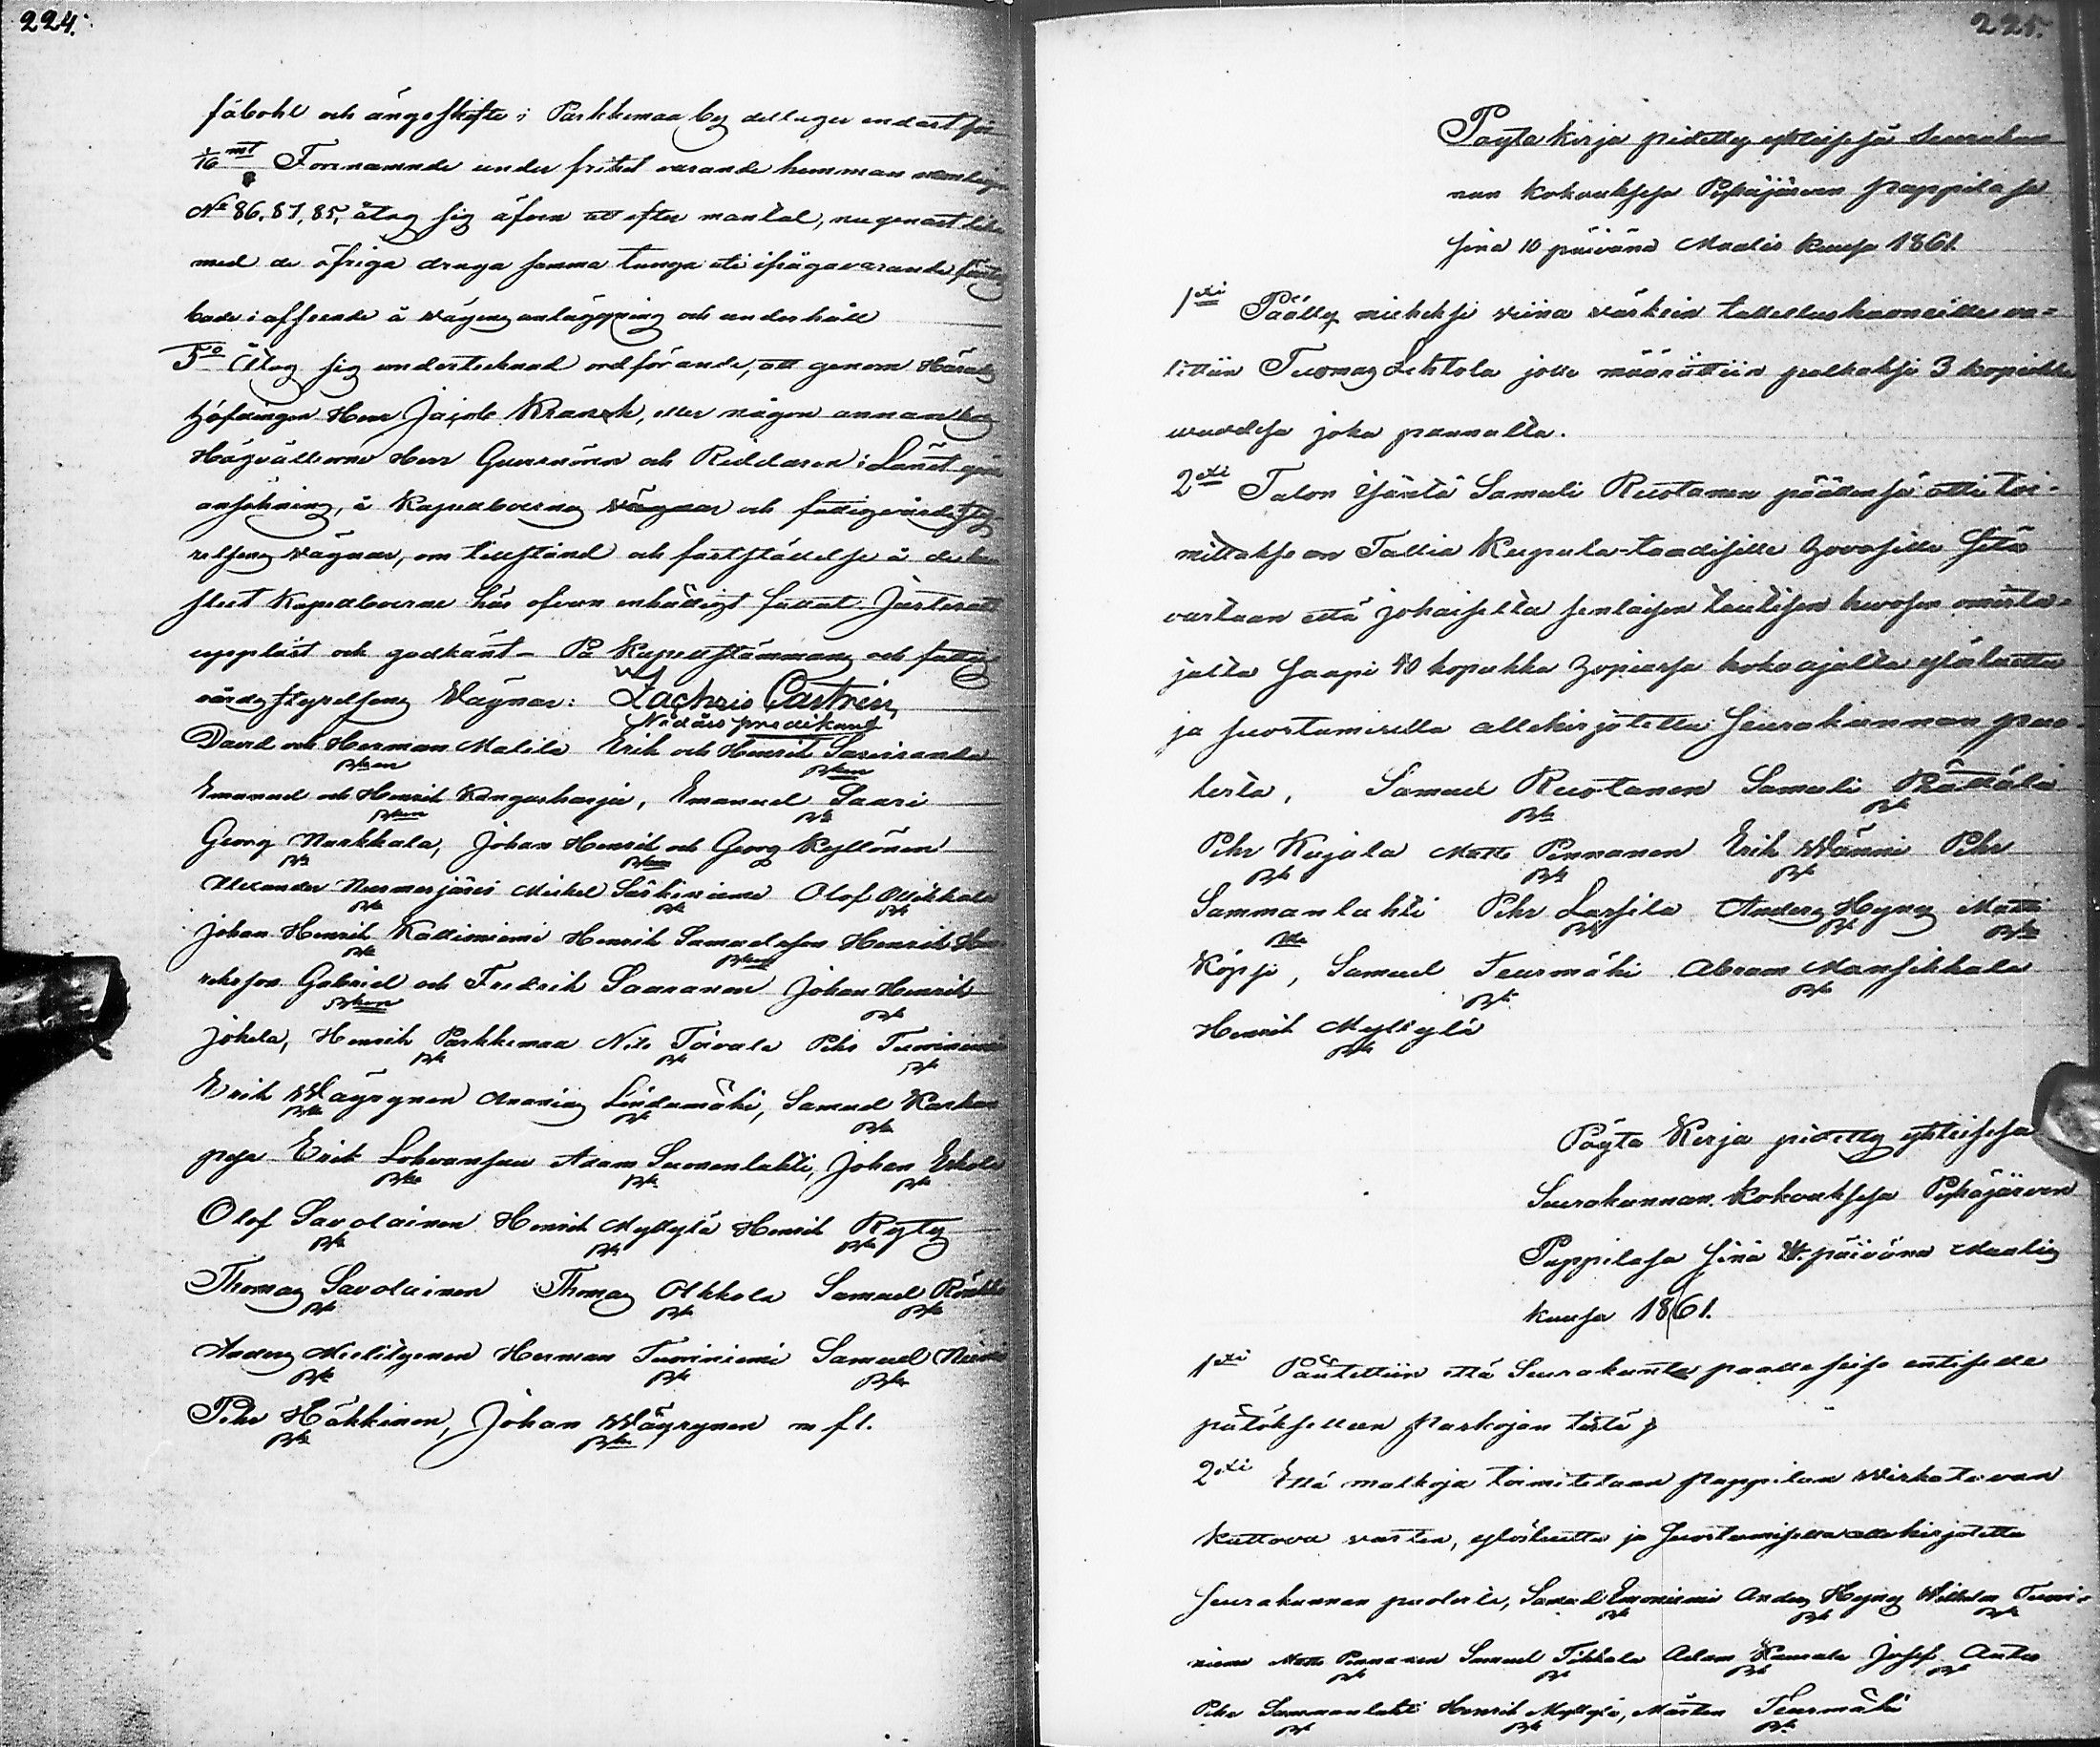 224.
fäbohl och ängeskifte i Parkkimaa by deltager endast för
1/16 mt Förenamnde under frihet varande hemman nemligen
No 86, 87, 85, åtog sig äfven att efter mantal, nu genast lika
med de öfriga draga samma tunga uti ifrågavarande
både i afseende å vägens anläggning och underhåll
5o Åtog sig undertecknad ordförande, att genom Härads
höfdingen Herr Jacob Kranck, eller någon annan hos
Högvällborne Herr Guvernören och Riddaren i Länet göra
ansökning, å Kapellboernas vägnar och fattigvårds sty-
relsens vägnar, om tillstånd och fastställelse å det be-
slut Kapellboerne här ofvan enhälligt fattat. Justerat
uppläst och godkänt – På Kapellstämmans och fattig
vårdsstyrelsens Wägnar: Zachris Castrén,
Nådårs predikant
David och Herman Malila Erik och Henrik Sarviranda
Bken Bken
Emanuel och Henrik Kangasharju, Emanuel Saari
Bken Bk
Georg Markkala, Johan Henrik och Georg Kyllönen
Bk Bken
Alexander Nurmesjärvi Mickel Särkiniemi Olof Ollikkala
Bk Bk Bk
Johan Henrik Kallioniemi Henrik Samuelsson Henrik Hen-
Bk Bken
riksson Gabriel och Fredrik Saaranen Johan Henrik
Bken Bk
Jokela, Henrik Parkkimaa Nils Toivala Pehr Tuominiemi
Bk Bk Bk
Erik Wäyrynen Ananias Lindumäki, Samuel Karhu
Bk Bk Bk
pää Erik Lohvansuu Adam Suonenlahti, Johan Erkola
Bk Bk Bk
Olof Savolainen Henrik Myllylä Henrik Ryty
Bk Bk Bk
Thomas Savolainen Thomas Olkkola Samuel Rönkkö
Bk Bk Bk
Anders Mielitynen Herman Tuominiemi Samuel Niemi
Bk Bk Bk
Pehr Häkkinen, Johan Wäyrynen m fl.
Bk Bk
225.
Pöytä kirja pidetty yhteisesä seurakun
nan kokouksesa Pyhäjärven pappilasa
sinä 10 päivänä Maalis kuusa 1861.
1xi Päälly mieheksi viina värkein tallellushuoneille va-
littiin Tuomas Lehtola jolle määrättiin palkaksi 3 kopeikka
vuodesa joka pannulta.
2xi Talon isäntä Samuli Ruotanen päällensä otti toi-
mittakse on Tallia Kupula-taudisille hevosille sitä
vastaan että jokaiselta senlaisen tautisen hevosen omista-
jalta saapi 40 kopeikka hopiasa koko ajalta ylösluettu
ja suostumisella allekirjotettu seurakunnan puo-
lesta, Samuel Ruotanen Samuli Määttälä
Bk Bk
Pehr Kujala Matts Pennanen Erik Wänni Pehr
Bk Bk Bk
Sammanlahti Pehr Lassila Anders Hyny Matti
Bk Bk Bk Bk
Köpsi, Samuel Teurmäki Abram Mansikkala
Bk Bk
Henrik Myllylä
Bk
Pöytä Kirja pidetty yhteisesä
Seurakunnan Kokouksesa Pyhäjärven
Pappilasa sinä päivänä Maalis
kuusa 1861.
1xi Päätettiin että Seurakunta päälle seiso entiselle
päätökselleen Karkojan tästä
2xi Että malkoja toimitetaan pappilan Wirkatuvan
kattova vasten, ylösluettu ja suostumisella allekirjotettu
seurakunnan puolesta, Samuel Emoniemi Anders Hyny Wilhelm Tuomi-
Bk Bk Bk
niemi Matts Pennanen Samuel Tikkala Adam Kamula Josef Anttu
Bk Bk Bk Bk
Pehr Sammanlahti Henrik Myllylä, Mårten Teurmäki
Bk Bk Bk